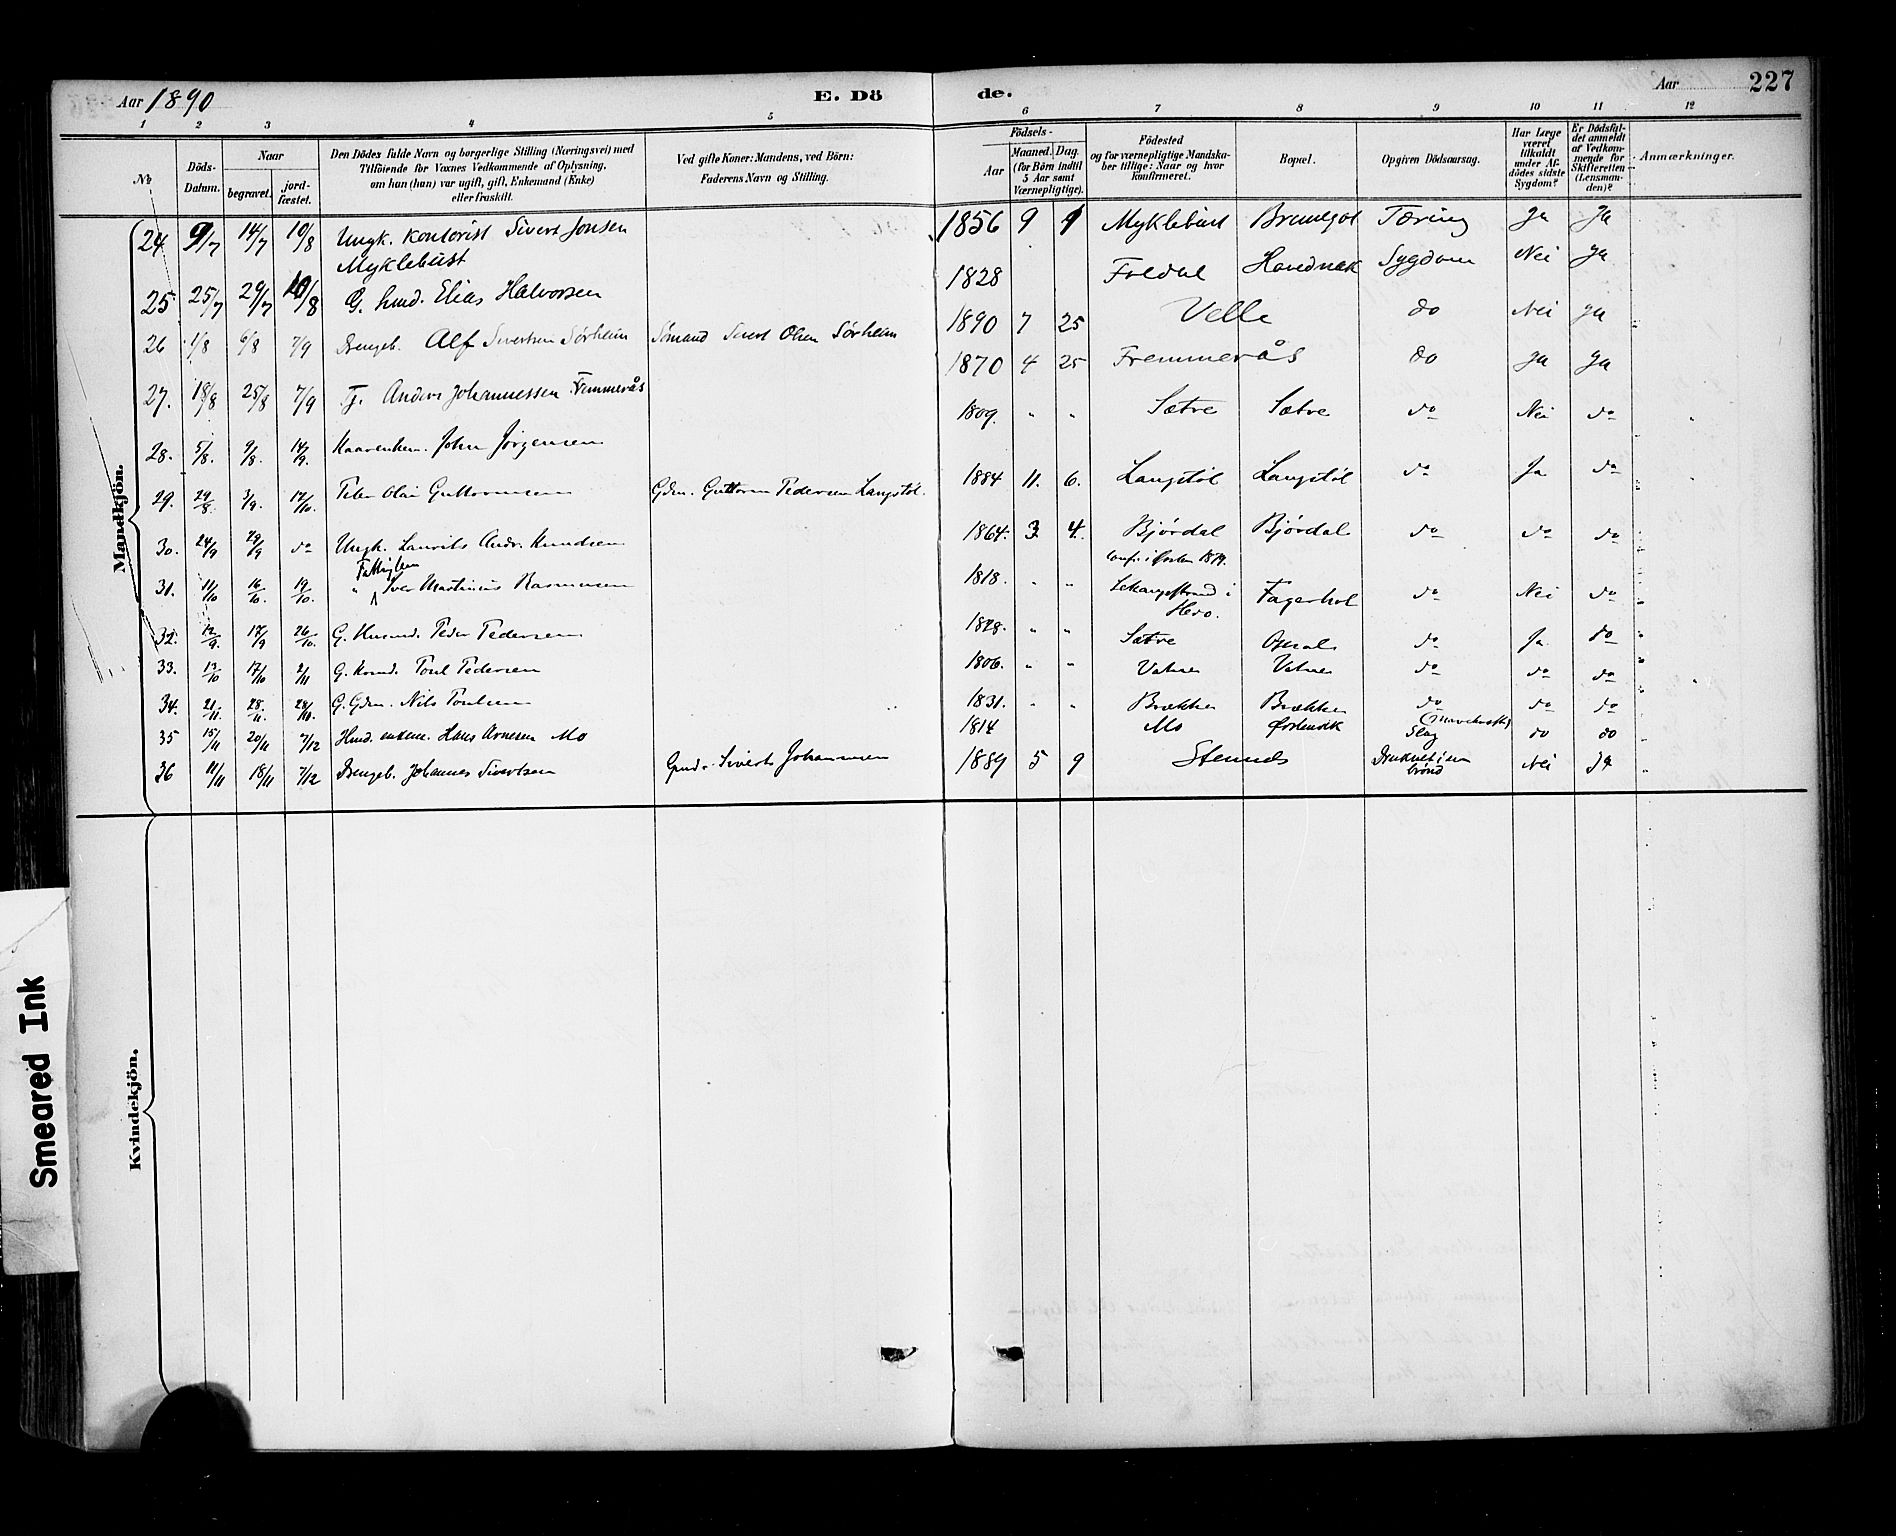 Aar 1890 E. Dö
de. Aar 227
1 2 3 4 5 6 7 8 9 10 11 12
No
Döds-Datum.
Naar
begravet.
jord-fæstet.
Den Dödes fulde Navn og borgerlige Stilling (Næringsvei) med
Tilföiende for Voxnes Vedkommende af Oplysning,
om han (hun) var ugift, gift, Enkemand (Enke)
eller fraskilt.
Ved gifte Koner: Mandens, ved Börn:
Faderens Navn og Stilling.
Födsels-
Aar
Maaned. Dag
(for Börn indtil
5 Aar samt
Værnepligtige).
Födested
og for værnepligtige Mandska-
ber tillige: Naar og hvor
konfirmeret.
Bopæl.
Opgiven Dödsaarsag.
Har Læge
været
tilkaldt
under Af-
dödes sidste
Sygdom?
Er Dödsfal-
det anmeldt
af Vedkom-
mende for
Skifteretten
(Lensman-
den)?
Anmærkninger.
Mandkjön.
24 9/7 14/7 10/8 Ungk. kontorist Sivert Jonsen 1856 9 1 Myklebust Tæring Ja Ja
Myklebust
25 25/7 29/7 10/8 G. hmd. Elias Halvorsen 1828 Foldal Sygdom Nei Ja
26 1/8 6/8 7/9 Alf Sivertsen Sørheim Sømand Sivert Olsen Sørheim 1890 7 25 Velle do Nei Ja
27. 18/8 25/8 7/9 Anders Johannessen Fremmerås 1870 4 25 Fremmerås do Ja Ja
28. 5/8. 9/8. 14/9. John Jørgensen 1809. " " Sætre Sætre do Nei do
29. 29/8 3/9. 12/10. Peder Olai Guttormsen Gdm. Guttorm Pedersen Langstøl. 1884 11. 6. Langstøl Langstøl do Ja do
30. 24/9 29/9 do Ungk. Laurits Andr. Knudsen 1864. 3. 4. Bjørdal Bjørdal do do do
conf. i Ørsten 1879.
Fattiglem
31. 11/10 16/10. 19/10. " Iver Martinus Rasmussen 1818. " " i Fagerhol do Nei do
Herø.
32. 12/9. 17/9 26/10. G. Peder Pedersen 1828. " " Sætre do Ja do
33. 13/10 17/10 2/11 G. Poul Pedersen 1806. " " Vatne Vatne do do do
34. 21/11 28/11. G. Gdm. Nils Poulsen 1831. " " Brække Brække do do do
35 15/11 20/11 7/12 Hmd. enkem. Hans Arnesen Mo 1814 Mo Ørstenvik Slag do do
36 11/11 18/11 7/12 Johannes Sivertsen Sivert Johannesen 1889 5 9 Druknet i en Nei Ja
brønd
Kvindekjön.
Smeared Ink